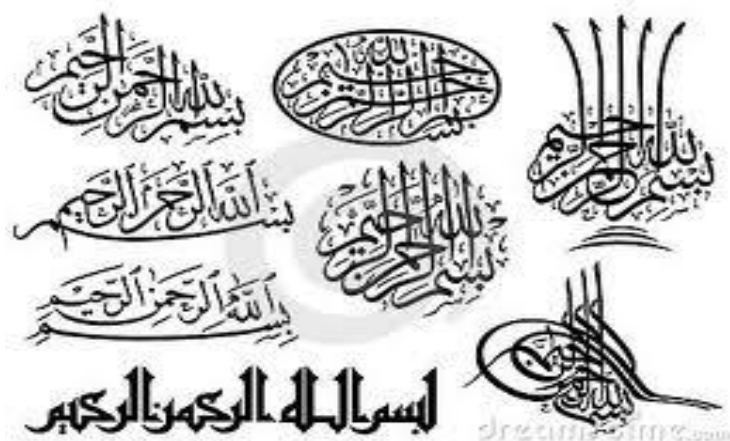 بسم الله الرحمن الرحيم
بسم الله الرحمن الرحيم
بسم الله الرحمن الرحيم
بسم الله الرحمن الرحيم
بسم الله الرحمن الرحيم
بسم الله الرحمن الرحيم
بسم الله الرحمن الرحيم
بسم الله الرحمن الرحيم
dreamstime.com